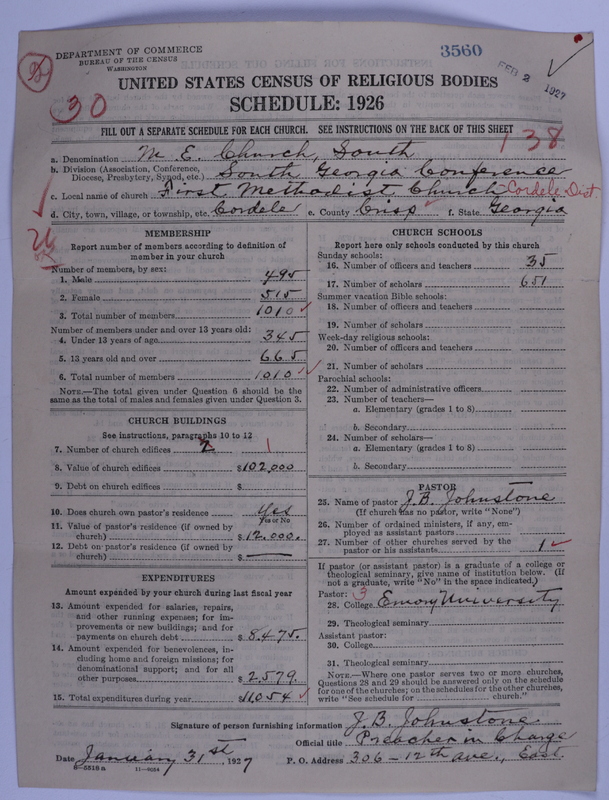 DEPARTMENT OF COMMERCE
BUREAU OF THE CENSUS
WASHINGTON
3560
FEB 2 1927
30
UNITED STATES CENSUS OF RELIGIOUS BODIES
SCHEDULE: 1926
FILL OUT A SEPARATE SCHEDULE FOR EACH CHURCH. SEE INSTRUCTIONS ON THE BACK OF THIS SHEET
138
a. Denomination M. E. Church, South
b. Division (Association, Conference, Diocese, Presbytery, Synod, etc.) South Georgia Conference
c. Local name of church First Methodist Church Cordele Dist.
d. City, town, village, or township, etc. Cordele e. County Crisp f. State Georgia
MEMBERSHIP
Report number of members according to definition of
member in your church
Number of members, by sex:
1. Male 495
2. Female 515
3. Total number of members 1010
Number of members under and over 13 years old:
4. Under 13 years of age 345
5. 13 years old and over 665
6. Total number of members 1010
NOTE.—The total given under Question 6 should be the
same as the total of males and females given under Question 3.
CHURCH BUILDINGS
See instructions, paragraphs 10 to 12
7. Number of church edifices 2 1
8. Value of church edifices $102,000
9. Debt on church edifices $
10. Does church own pastor's residence Yes
Yes or No
11. Value of pastor's residence (if owned by
church) $12,000.
12. Debt on pastor's residence (if owned by
church) $ —
EXPENDITURES
Amount expended by your church during last fiscal year
13. Amount expended for salaries, repairs,
and other running expenses; for im-
provements or new buildings; and for
payments on church debt $8,475.
14. Amount expended for benevolences, in-
cluding home and foreign missions; for
denominational support; and for all
other purposes $2,579.
15. Total expenditures during year $11054
CHURCH SCHOOLS
Report here only schools conducted by this church
Sunday schools:
16. Number of officers and teachers 35
17. Number of scholars 651
Summer vacation Bible schools:
18. Number of officers and teachers
19. Number of scholars
Week-day religious schools:
20. Number of officers and teachers
21. Number of scholars
Parochial schools:
22. Number of administrative officers
23. Number of teachers—
a. Elementary (grades 1 to 8)
b. Secondary
24. Number of scholars—
a. Elementary (grades 1 to 8)
b. Secondary
PASTOR
25. Name of pastor J. B. Johnstone
(If church has no pastor, write "None")
26. Number of ordained ministers, if any, em-
ployed as assistant pastors
27. Number of other churches served by the
pastor or his assistants 1
If pastor (or assistant pastor) is a graduate of a college or
theological seminary, give name of institution below. (If
not a graduate, write "No" in the space indicated.)
Pastor: 3
28. College Emory University
29. Theological seminary
Assistant pastor:
30. College
31. Theological seminary
NOTE.—Where one pastor serves two or more churches,
Questions 28 and 29 should be answered only on the schedule
for one of the churches; on the schedules for the other churches,
write "See schedule for church."
Signature of person furnishing information J. B. Johnstone
Official title Preacher in Charge
Date January 31st 1927 P. O. Address 306-12th ave., East.
8-5518 a 11-9034